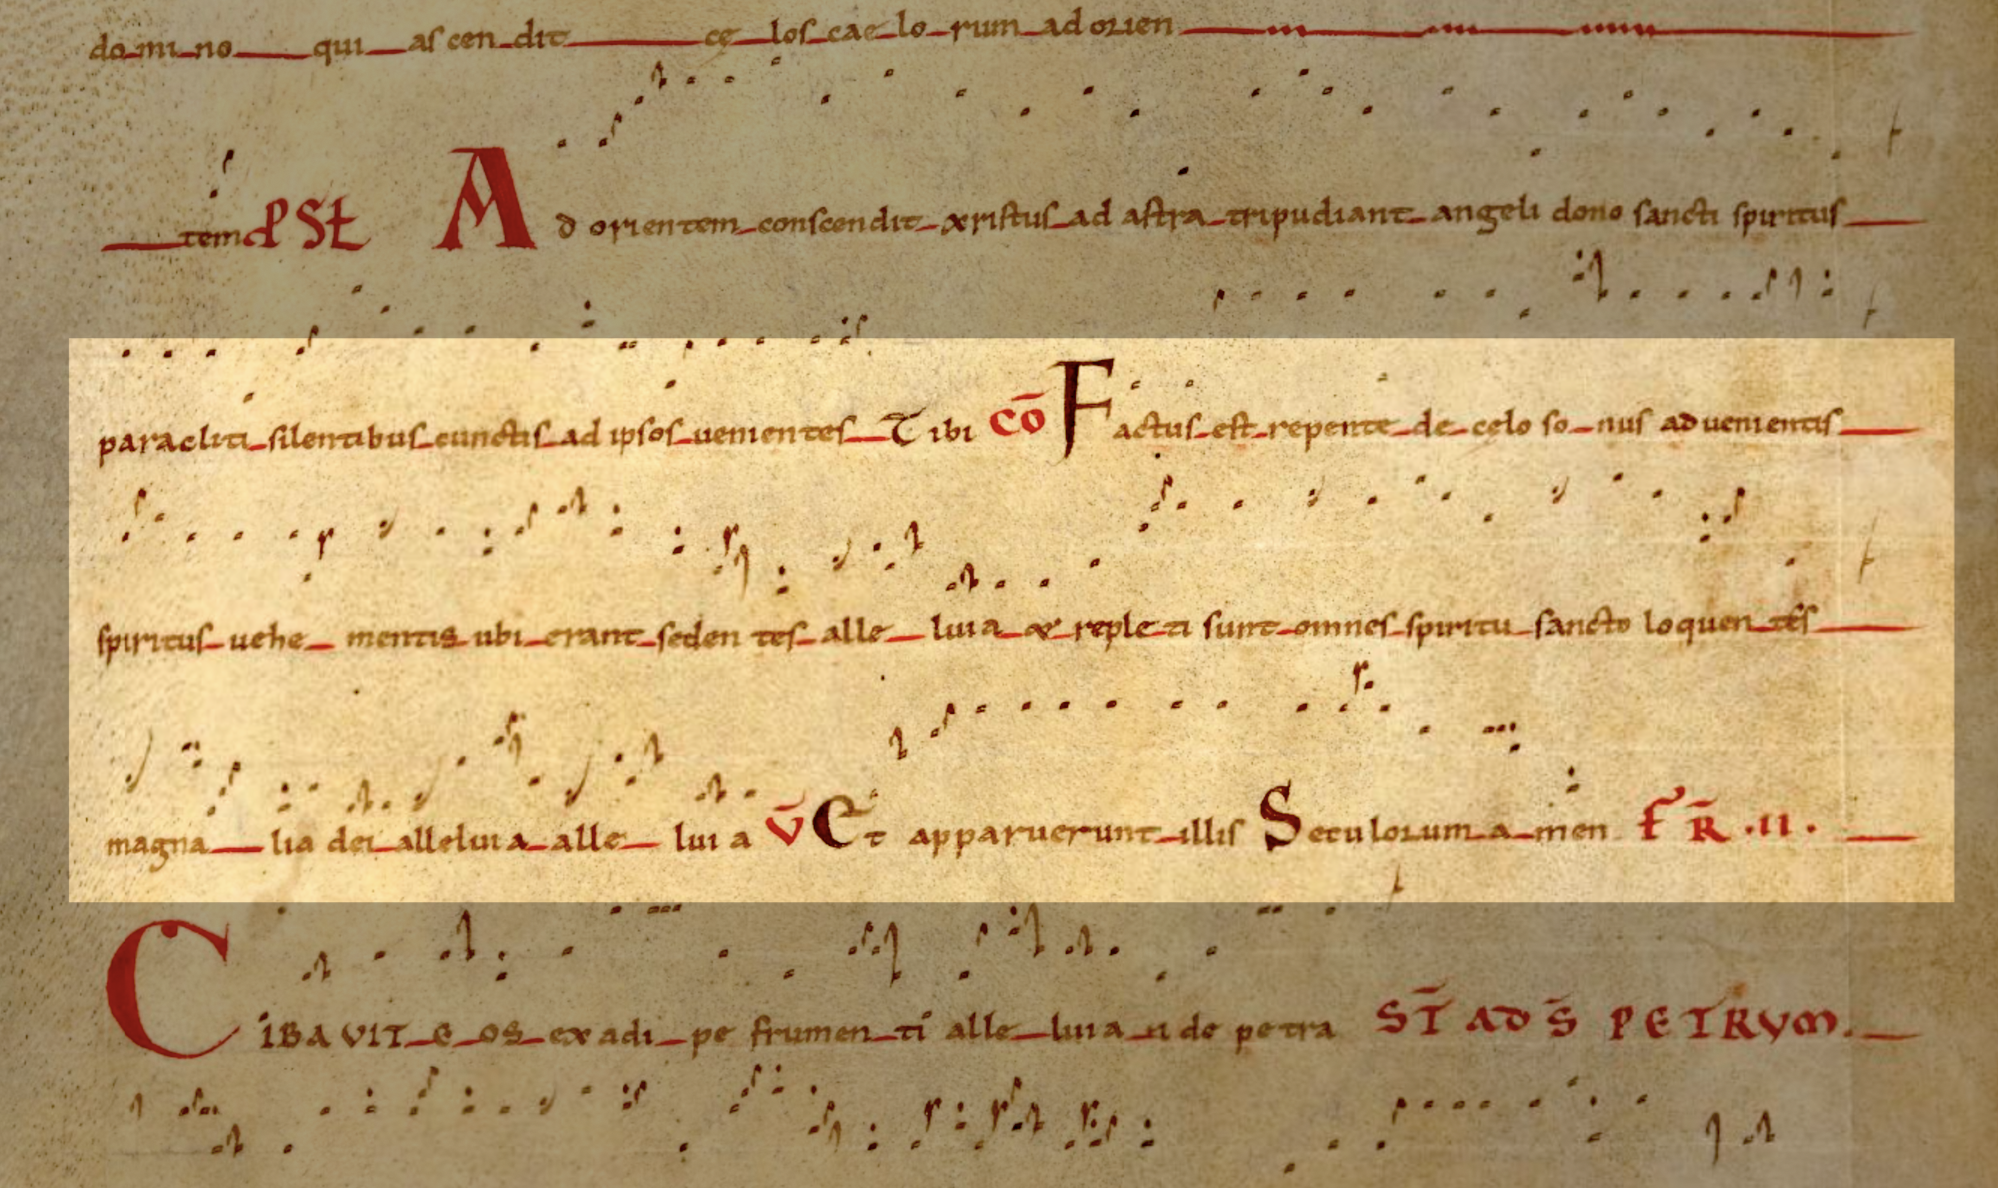 do mi no qui as cen dit cę los cae lo rum ad orien
tem PSt Ad orientem conscendit xristus ad astra tripudiant angeli dono sancti spiritus
paracliti silentibus cunctis ad ipsos uenientes Tibi cō Factus est repente de celo so nus aduenientis
spiritus uehe mentis ubi erant seden tes alle luia & reple ti sunt omnes spiritu sancto loquen tes
magna lia dei alleluia alle lui a v̄ Et apparuerunt illis Seculorum a men FR̄ .II.
CIBAVIT E OS ex adi pe frumen ti alle luia 11 de petra ST̄ AD S̄ PETRVM.